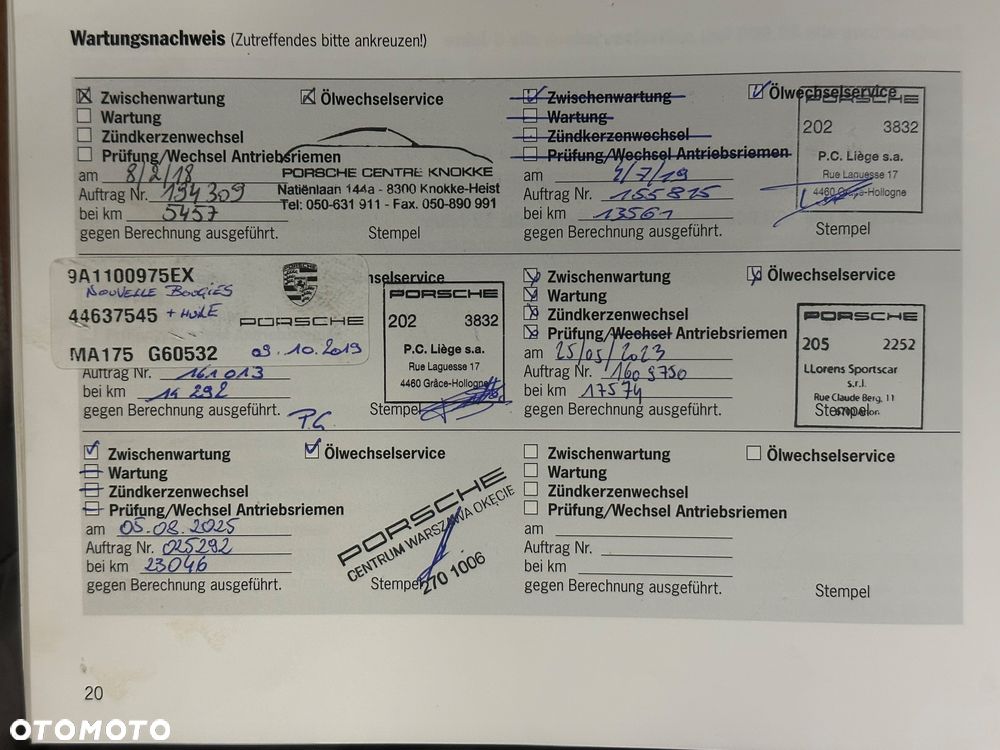 Wartungsnachweis (Zutreffendes bitte ankreuzen!)
Zwischenwartung
Ölwechselservice
Wartung
Zündkerzenwechsel
Prüfung/Wechsel Antriebsriemen
am 8/2/18
Auftrag Nr. 194309
bei km 5457
gegen Berechnung ausgeführt.
Stempel
PORSCHE CENTRE KNOKKE
Natiënlaan 144a - 8300 Knokke-Heist
Tel: 050-631 911 - Fax. 050-890 991
Zwischenwartung
Ölwechselservice
Wartung
Zündkerzenwechsel
Prüfung/Wechsel Antriebsriemen
am 2/7/19
Auftrag Nr. 155815
bei km 13561
gegen Berechnung ausgeführt.
Stempel
PORSCHE
202 3832
P.C. Liège s.a.
Rue Laguesse 17
4460 Grâce-Hollogne
9A1100975EX
NOUVELLE BOUGIES
44637545 + HUILE
PORSCHE
MA175 G60532 09.10.2019
selservice
Auftrag Nr. 161013
bei km 14292
gegen Berechnung ausgeführt.
P.C
Stempel
PORSCHE
202 3832
P.C. Liège s.a.
Rue Laguesse 17
4460 Grâce-Hollogne
Zwischenwartung
Ölwechselservice
Wartung
Zündkerzenwechsel
Prüfung/Wechsel Antriebsriemen
am 25/05/2023
Auftrag Nr. 1609750
bei km 17574
gegen Berechnung ausgeführt.
Stempel
PORSCHE
205 2252
LLorens Sportscar
s.r.l.
Rue Claude Berg, 11
Zwischenwartung
Ölwechselservice
Wartung
Zündkerzenwechsel
Prüfung/Wechsel Antriebsriemen
am 05.08.2025
Auftrag Nr. 025292
bei km 23046
gegen Berechnung ausgeführt.
Stempel
PORSCHE
CENTRUM WARSZAWA OKĘCIE
270 1006
Zwischenwartung
Ölwechselservice
Wartung
Zündkerzenwechsel
Prüfung/Wechsel Antriebsriemen
am
Auftrag Nr.
bei km
gegen Berechnung ausgeführt.
Stempel
20
OTOMOTO